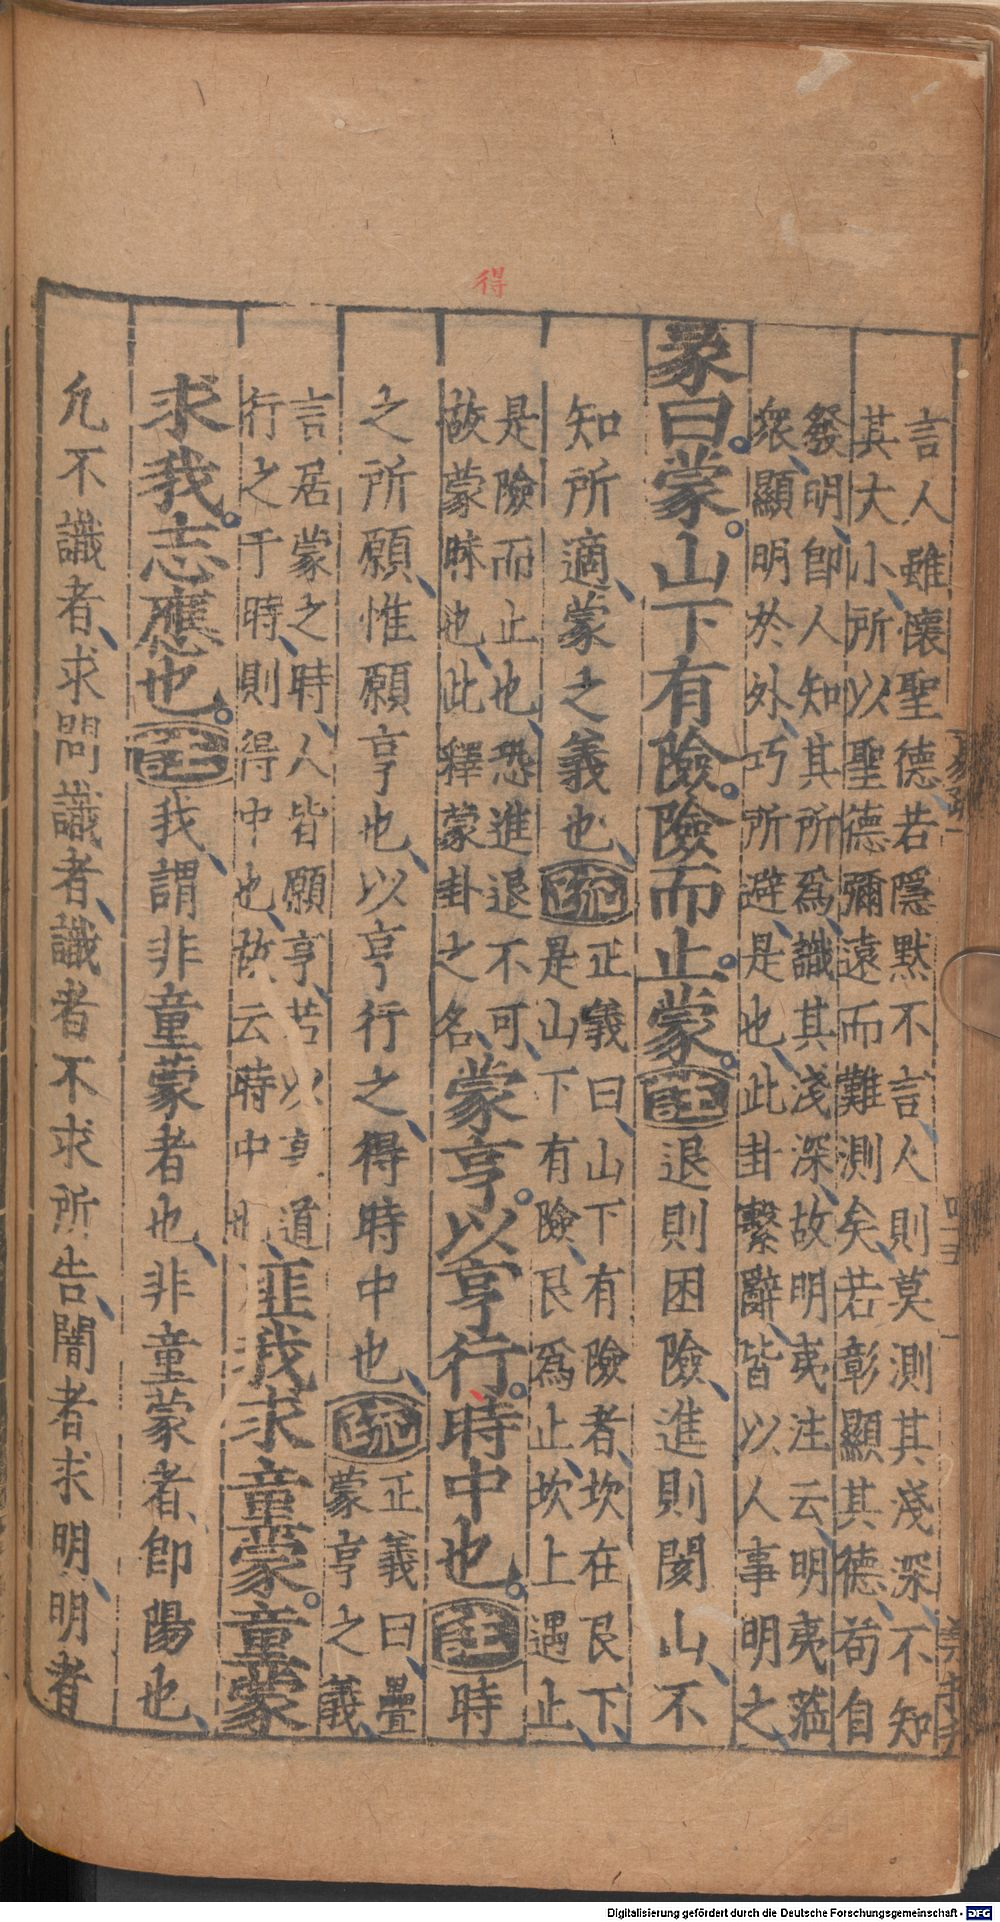 得
言人雖懷聖德若隱默不言人則莫測其淺深不知
其大小所以聖德彌遠而難測矣若彰顯其德苟自
發明即人知其所爲識其淺深故明夷注云明夷蒞
衆顯明於外巧所避是也此卦繫辭皆以人事明之
彖曰蒙山下有險險而止蒙註退則困險進則閡山不
知所適蒙之義也疏
正義曰山下有險者坎在艮下
是山下有險艮爲止坎上遇止
是險而止也恐進退不可
故蒙昧也此釋蒙卦之名
蒙亨以亨行時中也註時
之所願惟願亨也以亨行之得時中也疏
正義曰疊
蒙亨之義
言居蒙之時人皆願亨若以亨道
行之于時則得中也故云時中也
匪我求童蒙童蒙
求我志應也註我謂非童蒙者也非童蒙者即陽也
凡不識者求問識者識者不求所告闇者求明明者
Digitalisierung gefördert durch die Deutsche Forschungsgemeinschaft - DFG